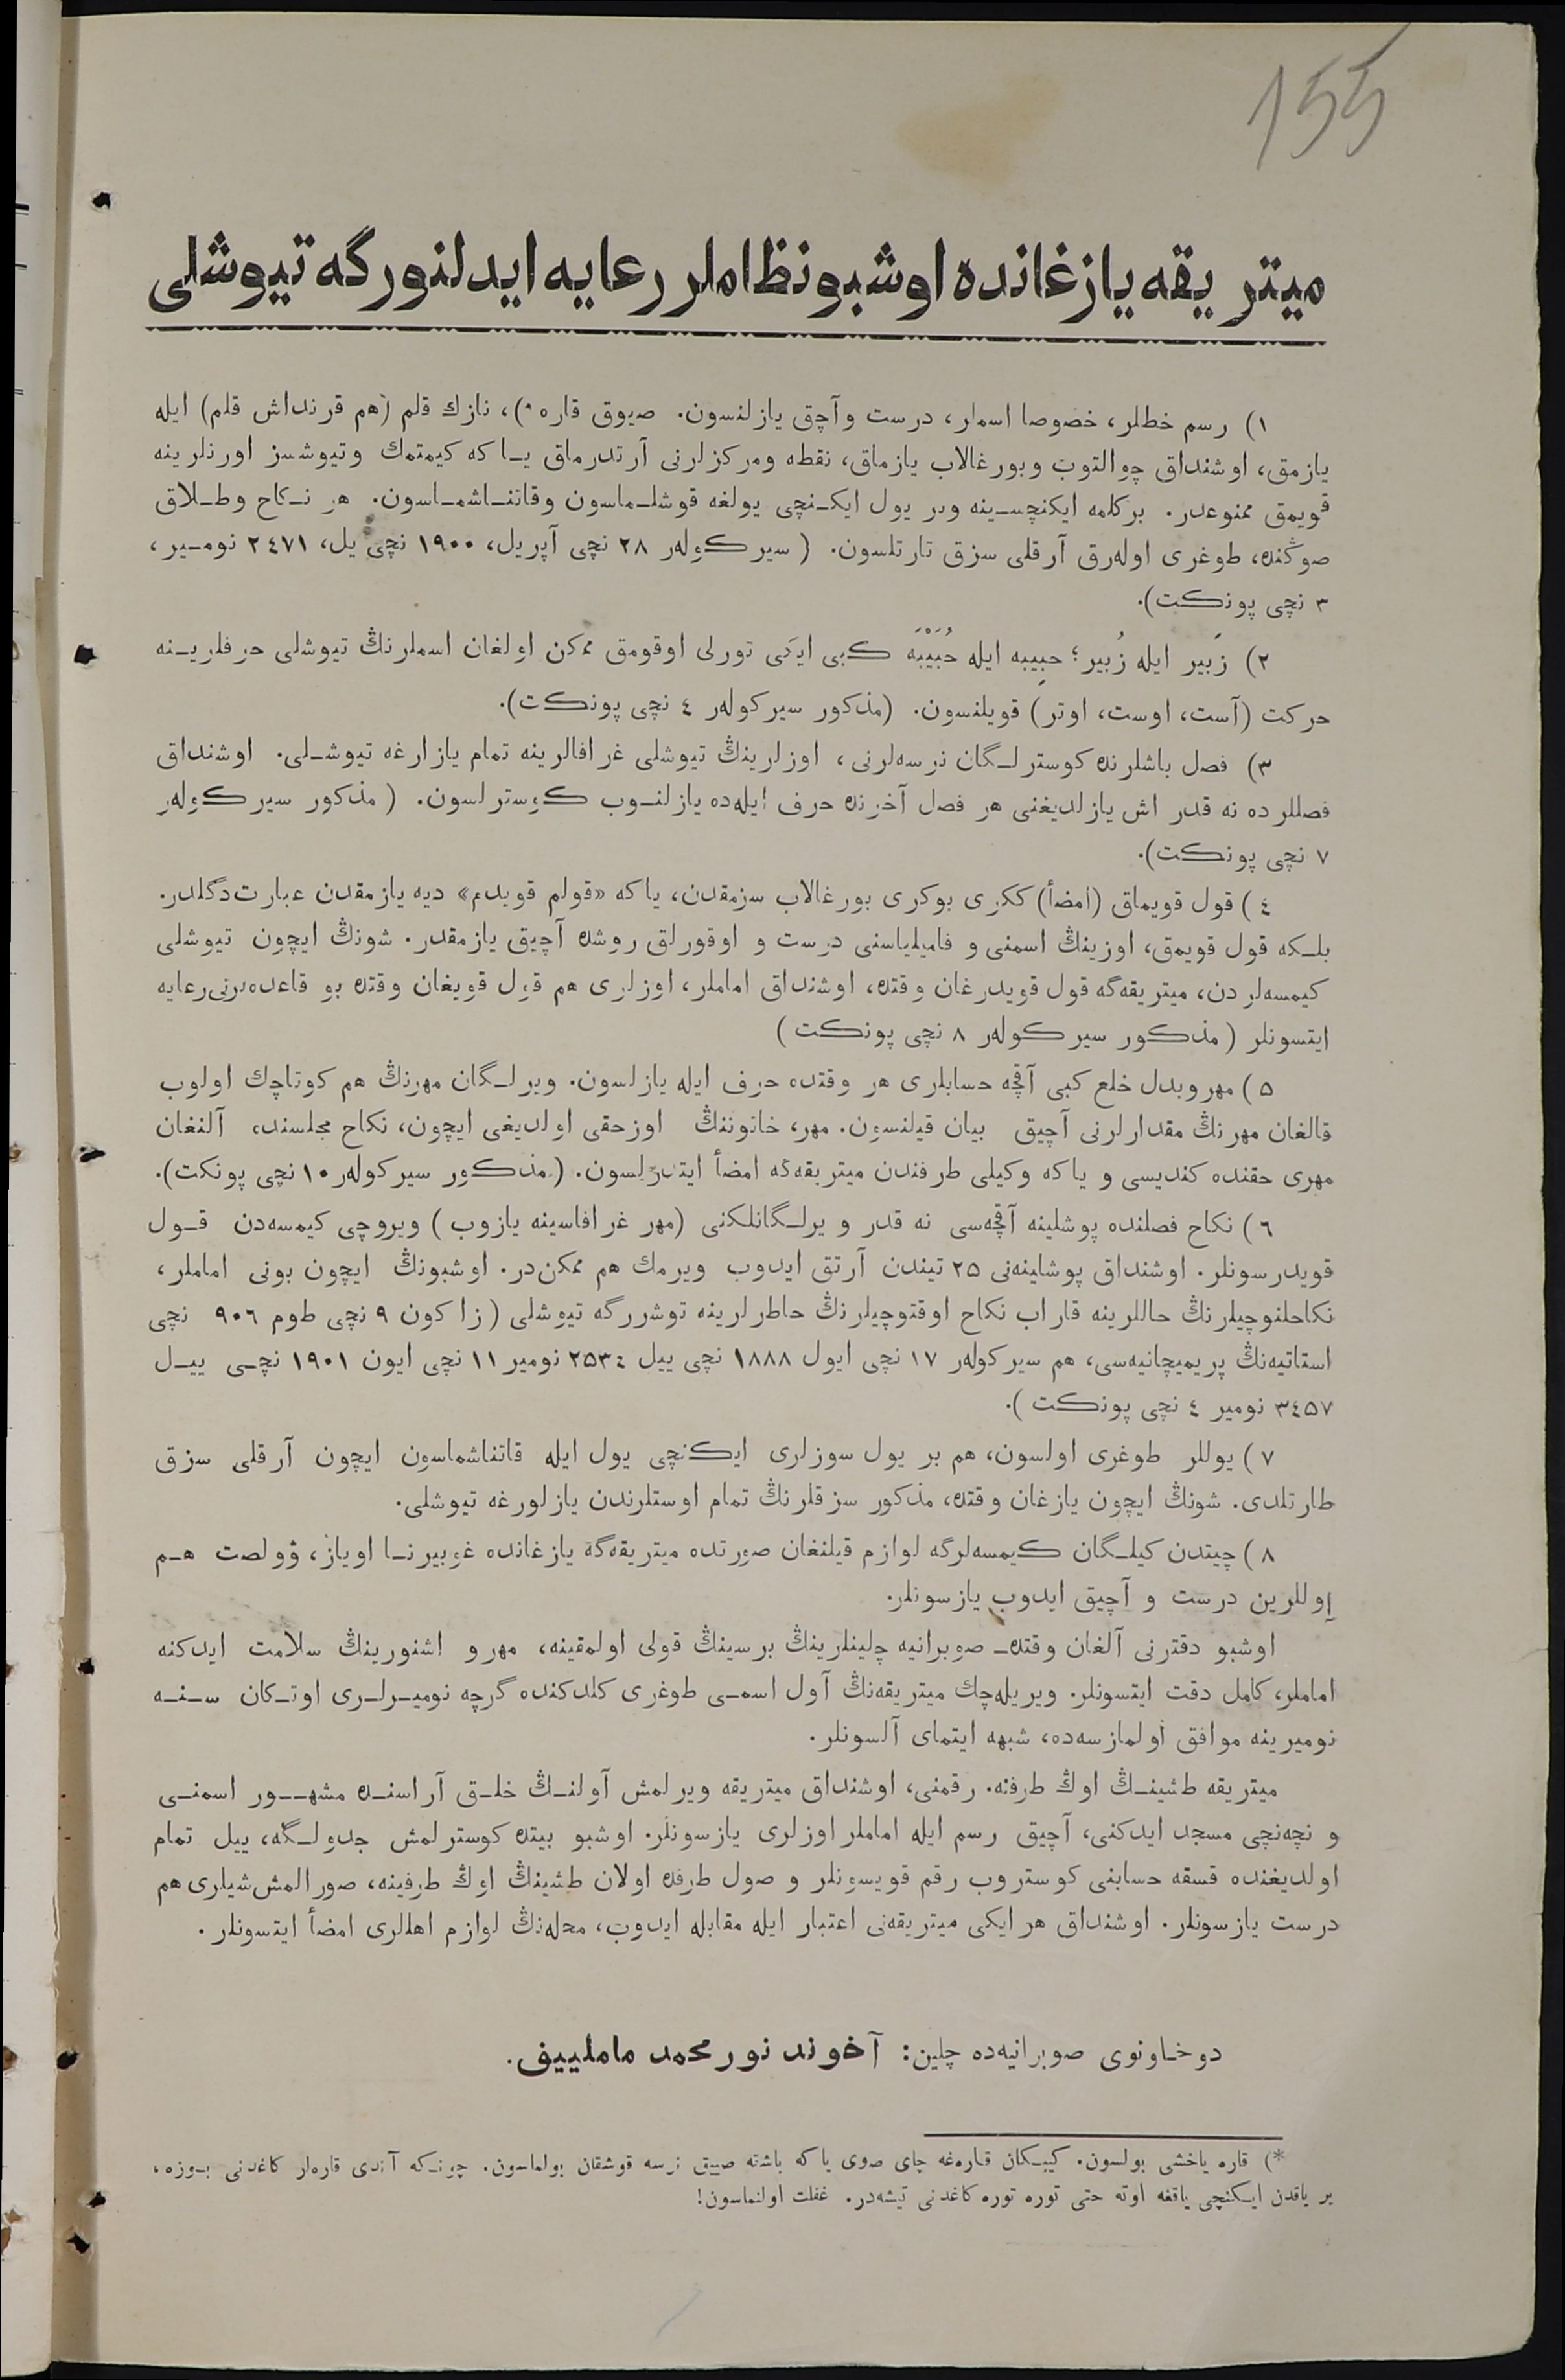 155
ميتريقه يازغانده اوشبو نظاملر رعايه ايدلنورگه تيوشلى
١) رسم خطلر، خصوصا اسملر، درست وآچق يازلنسون. صيوق قاره *)، نازك قلم (هم قرنداش قلم) ايله
يازمق، اوشنداق چوالتوب وبورغالاب يازماق، نقطه ومركزلرنى آرتدرماق يا كه كيمتمك وتيوشسز اورنلرينه
قويمق ممنوعدر. بركلمه ايكنچسينه وبر يول ايكنچى يولغه قوشلماسون وقاتناشماسون. هر نكاح وطلاق
صوڭنده، طوغرى اوله‌رق آرقلى سزق تارتلسون. (سيركوله‌ر ٢٨ نچى آپريل، ١٩٠٠ نچى يل، ٢٤٧١ نومير،
٣ نچى پونكت).
٢) زَبير ايله زُبير؛ حبِيبه ايله حُبَيْبَه كبى ايكى تورلى اوقومق ممكن اولغان اسملرنڭ تيوشلى حرفلرينه
حركت (آست، اوست، اوتر) قويلنسون. (مذكور سيركوله‌ر ٤ نچى پونكت).
٣) فصل باشلرنده كوسترلگان نرسه‌لرنى، اوزلرينڭ تيوشلى غرافالرينه تمام يازارغه تيوشلى. اوشنداق
فصللرده نه قدر اش يازلديغنى هر فصل آخرنده حرف ايله‌ده يازلنوب كوسترلسون. (مذكور سيركوله‌ر
٧ نچى پونكت).
٤) قول قويماق (امضأ) ككرى بوكرى بورغالاب سزمقدن، ياكه «قولم قويدم» ديه يازمقدن عبارت دگلدر.
بلكه قول قويمق، اوزينڭ اسمنى و فاميلياسنى درست و اوقورلق روشده آچيق يازمقدر. شونڭ ايچون تيوشلى
كيمسه‌لردن، ميتريقه‌گه قول قويدرغان وقتده، اوشنداق اماملر، اوزلرى هم قول قويغان وقتده بو قاعده‌نى رعايه
ايتسونلر (مذكور سيركوله‌ر ٨ نچى پونكت)
٥) مهر وبدل خلع كبى آقچه حسابلرى هر وقتده حرف ايله يازلسون. ويرلگان مهرنڭ هم كوتاچك اولوب
قالغان مهرنڭ مقدارلرنى آچيق بيان قيلنسون. مهر، خاتوننڭ اوزحقى اولديغى ايچون، نكاح مجلسنده، آلنغان
مهرى حقنده كنديسى و ياكه وكيلى طرفندن ميتريقه‌گه امضأ ايتدرلسون. (مذكور سيركوله‌ر ١٠ نچى پونكت).
٦) نكاح فصلنده پوشلينه آقچه‌سى نه قدر ويرلگانلكنى (مهر غرافاسينه يازوب) ويروچى كيمسه‌دن قول
قويدرسونلر. اوشنداق پوشلينه‌نى ٢٥ تيندن آرتق ايدوب ويرمك هم ممكن‌در. اوشبونڭ ايچون بونى اماملر،
نكاحلنوچيلرنڭ حاللرينه قاراب نكاح اوقتوچيلرنڭ خاطرلرينه توشررگه تيوشلى (زاكون ٩ نچى طوم ٩٠٦ نچى
استاتيه‌نڭ پريميچانيه‌سى، هم سيركوله‌ر ١٧ نچى ايول ١٨٨٨ نچى ييل ٢٥٣٤ نومير ١١ نچى ايون ١٩٠١ نچى ييل
٣٤٥٧ نومير ٤ نچى پونكت).
٧) يوللر طوغرى اولسون، هم بر يول سوزلرى ايكنچى يول ايله قاتناشماسون ايچون آرقلى سزق
طارتلدى. شونڭ ايچون يازغان وقتده، مذكور سزقلرنڭ تمام اوستلرندن يازلورغه تيوشلى.
٨) چيتدن كيلگان كيمسه‌لرگه لوازم قيلنغان صورتده ميتريقه‌گه يازغانده غوبيرنا اوياز، ۋولصت هم
آوللرين درست و آچيق ايدوب يازسونلر.
اوشبو دفترنى آلغان وقتده صوبرانيه چلينلرينڭ برسينڭ قولى اولمقينه، مهر و اشنورينڭ سلامت ايدكنه
اماملر، كامل دقت ايتسونلر. ويريله‌چك ميتريقه‌نڭ آول اسمى طوغرى كلدكنده گرچه نوميرلرى اوتكان سنه
نوميرينه موافق اولمازسه‌ده، شبهه ايتماى آلسونلر.
ميتريقه طشينڭ اوڭ طرفنه. رقمنى، اوشنداق ميتريقه ويرلمش آولنڭ خلق آراسنده مشهور اسمنى
و نچه‌نچى مسجد ايدكنى، آچيق رسم ايله اماملر اوزلرى يازسونلر. اوشبو بيتده كوسترلمش جدولگه، ييل تمام
اولديغنده قسقه حسابنى كوستروب رقم قويسونلر و صول طرفده اولان طشينڭ اوڭ طرفينه، صورالمش شيلرى هم
درست يازسونلر. اوشنداق هر ايكى ميتريقه‌نى اعتبار ايله مقابله ايدوب، محله‌نڭ لوازم اهللرى امضأ ايتسونلر.
دوخاونوى صوبرانيه‌ده چلين: آخوند نورمحمد ماملييف.
*) قاره ياخشى بولسون. كيبكان قاره‌غه چاى صوى ياكه باشته صييق نرسه قوشقان بولماسون. چونكه آندى قاره‌لر كاغدنى بوزه،
بر ياقدن ايكنچى ياققه اوته حتى توره توره كاغدنى تيشه‌در. غفلت اولنماسون!